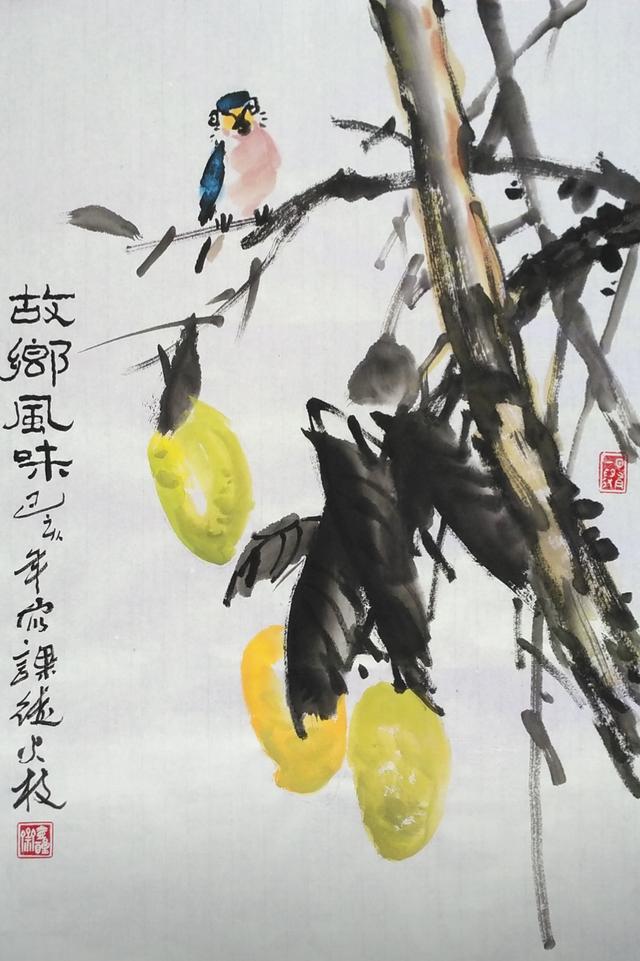 故鄉風味己亥年課徒火枝